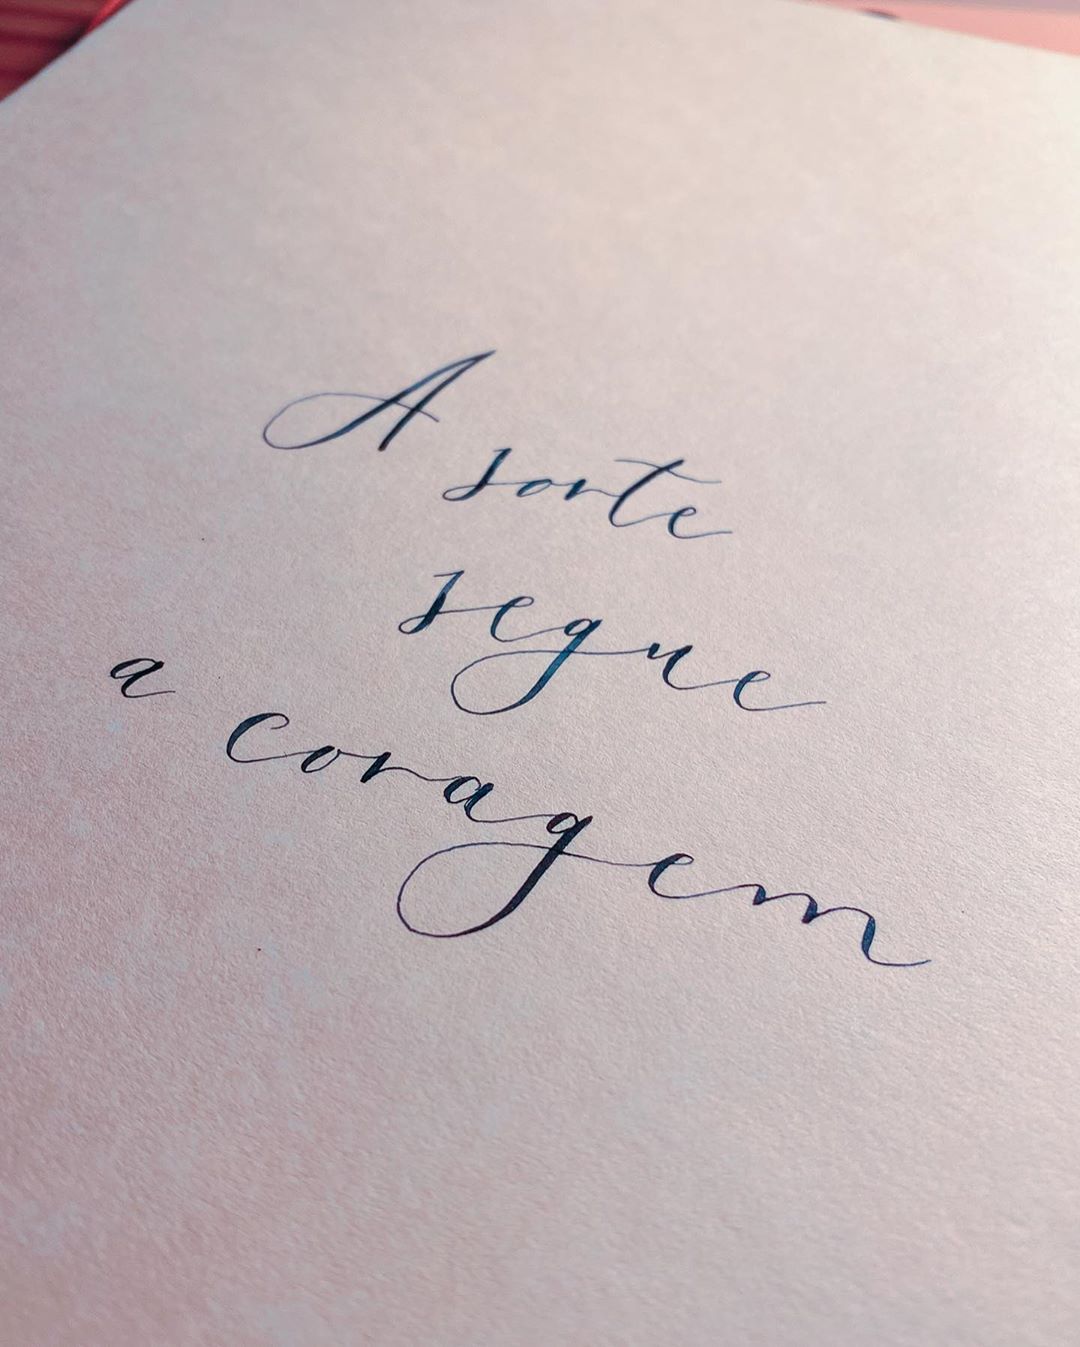 A sorte
segue
a coragem